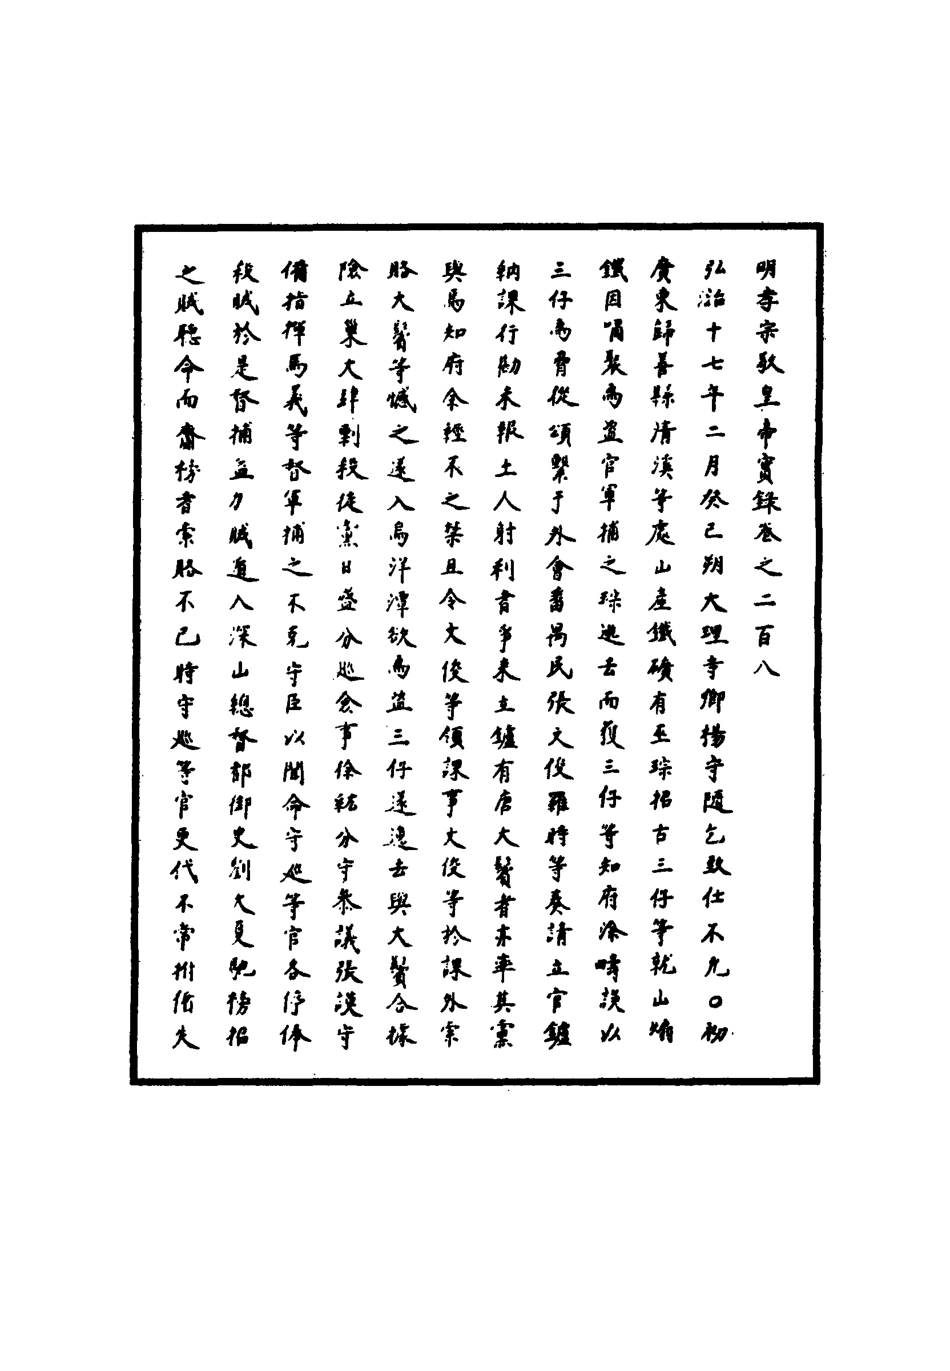 明孝宗敬皇帝實録卷之二百八
弘治十七年二月癸巳朔大理寺卿楊守隨乞致仕不允○初
廣東歸善縣清溪等處山產鐵礦有巫琮招古三仔等就山煽
鐵因嘯聚為盜官軍捕之琮逃去而獲三仔等知府涂疇議以
三仔為脅從頌繫于外會番禺民張文俊羅時等奏請立官鑪
納課行勘未報土人射利者爭來立鑪有唐大鬢者亦率其黨
與焉知府余輕不之禁且令文俊等領課事文俊等於課外索
賂大鬢等憾之遂入烏洋潭欲為盜三仔遂逸去與大鬢合據
險立巢大肆剽殺徒黨日盛分巡僉事徐紘分守叅議張謨守
備指揮馬義等督軍捕之不克守臣以聞命守巡等官各停俸
殺賊於是督捕益力賊遁入深山總督都御史劉大夏馳榜招
之賊聽命而齎榜者索賂不已時守巡等官更代不常拊循失